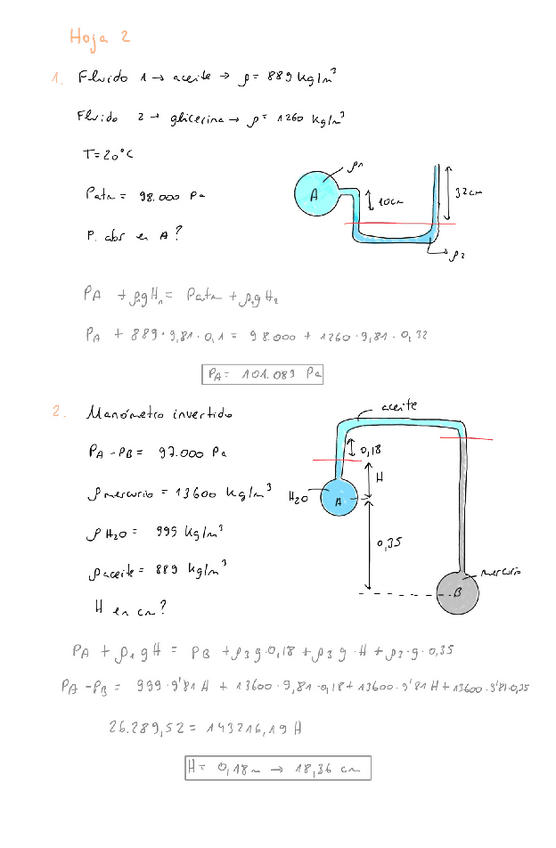 Hoja 2
1. Fluido 1 → aceite → ρ = 889 kg/m³
Fluido 2 → glicerina → ρ = 1260 kg/m³
T = 20°C
Patm = 98.000 Pa
P. abs en A?
ρ1
A
10cm
32cm
ρ2
PA + ρ1gH1 = Patm + ρ2gH2
PA + 889·9,81·0,1 = 98.000 + 1260·9,81·0,32
PA = 101.083 Pa
2. Manómetro invertido
PA - PB = 97.000 Pa
ρmercurio = 13600 kg/m³
ρH2O = 999 kg/m³
ρaceite = 889 kg/m³
H en cm?
aceite
0,18
H
H2O
A
0,35
mercurio
B
PA + ρ1gH = PB + ρ3g·0,18 + ρ3g·H + ρ3·g·0,35
PA - PB = 999·9'81H + 13600·9,81·0,18 + 13600·9'81H + 13600·9'81·0,35
26.289,52 = 143216,19 H
H = 0,18m → 18,36 cm